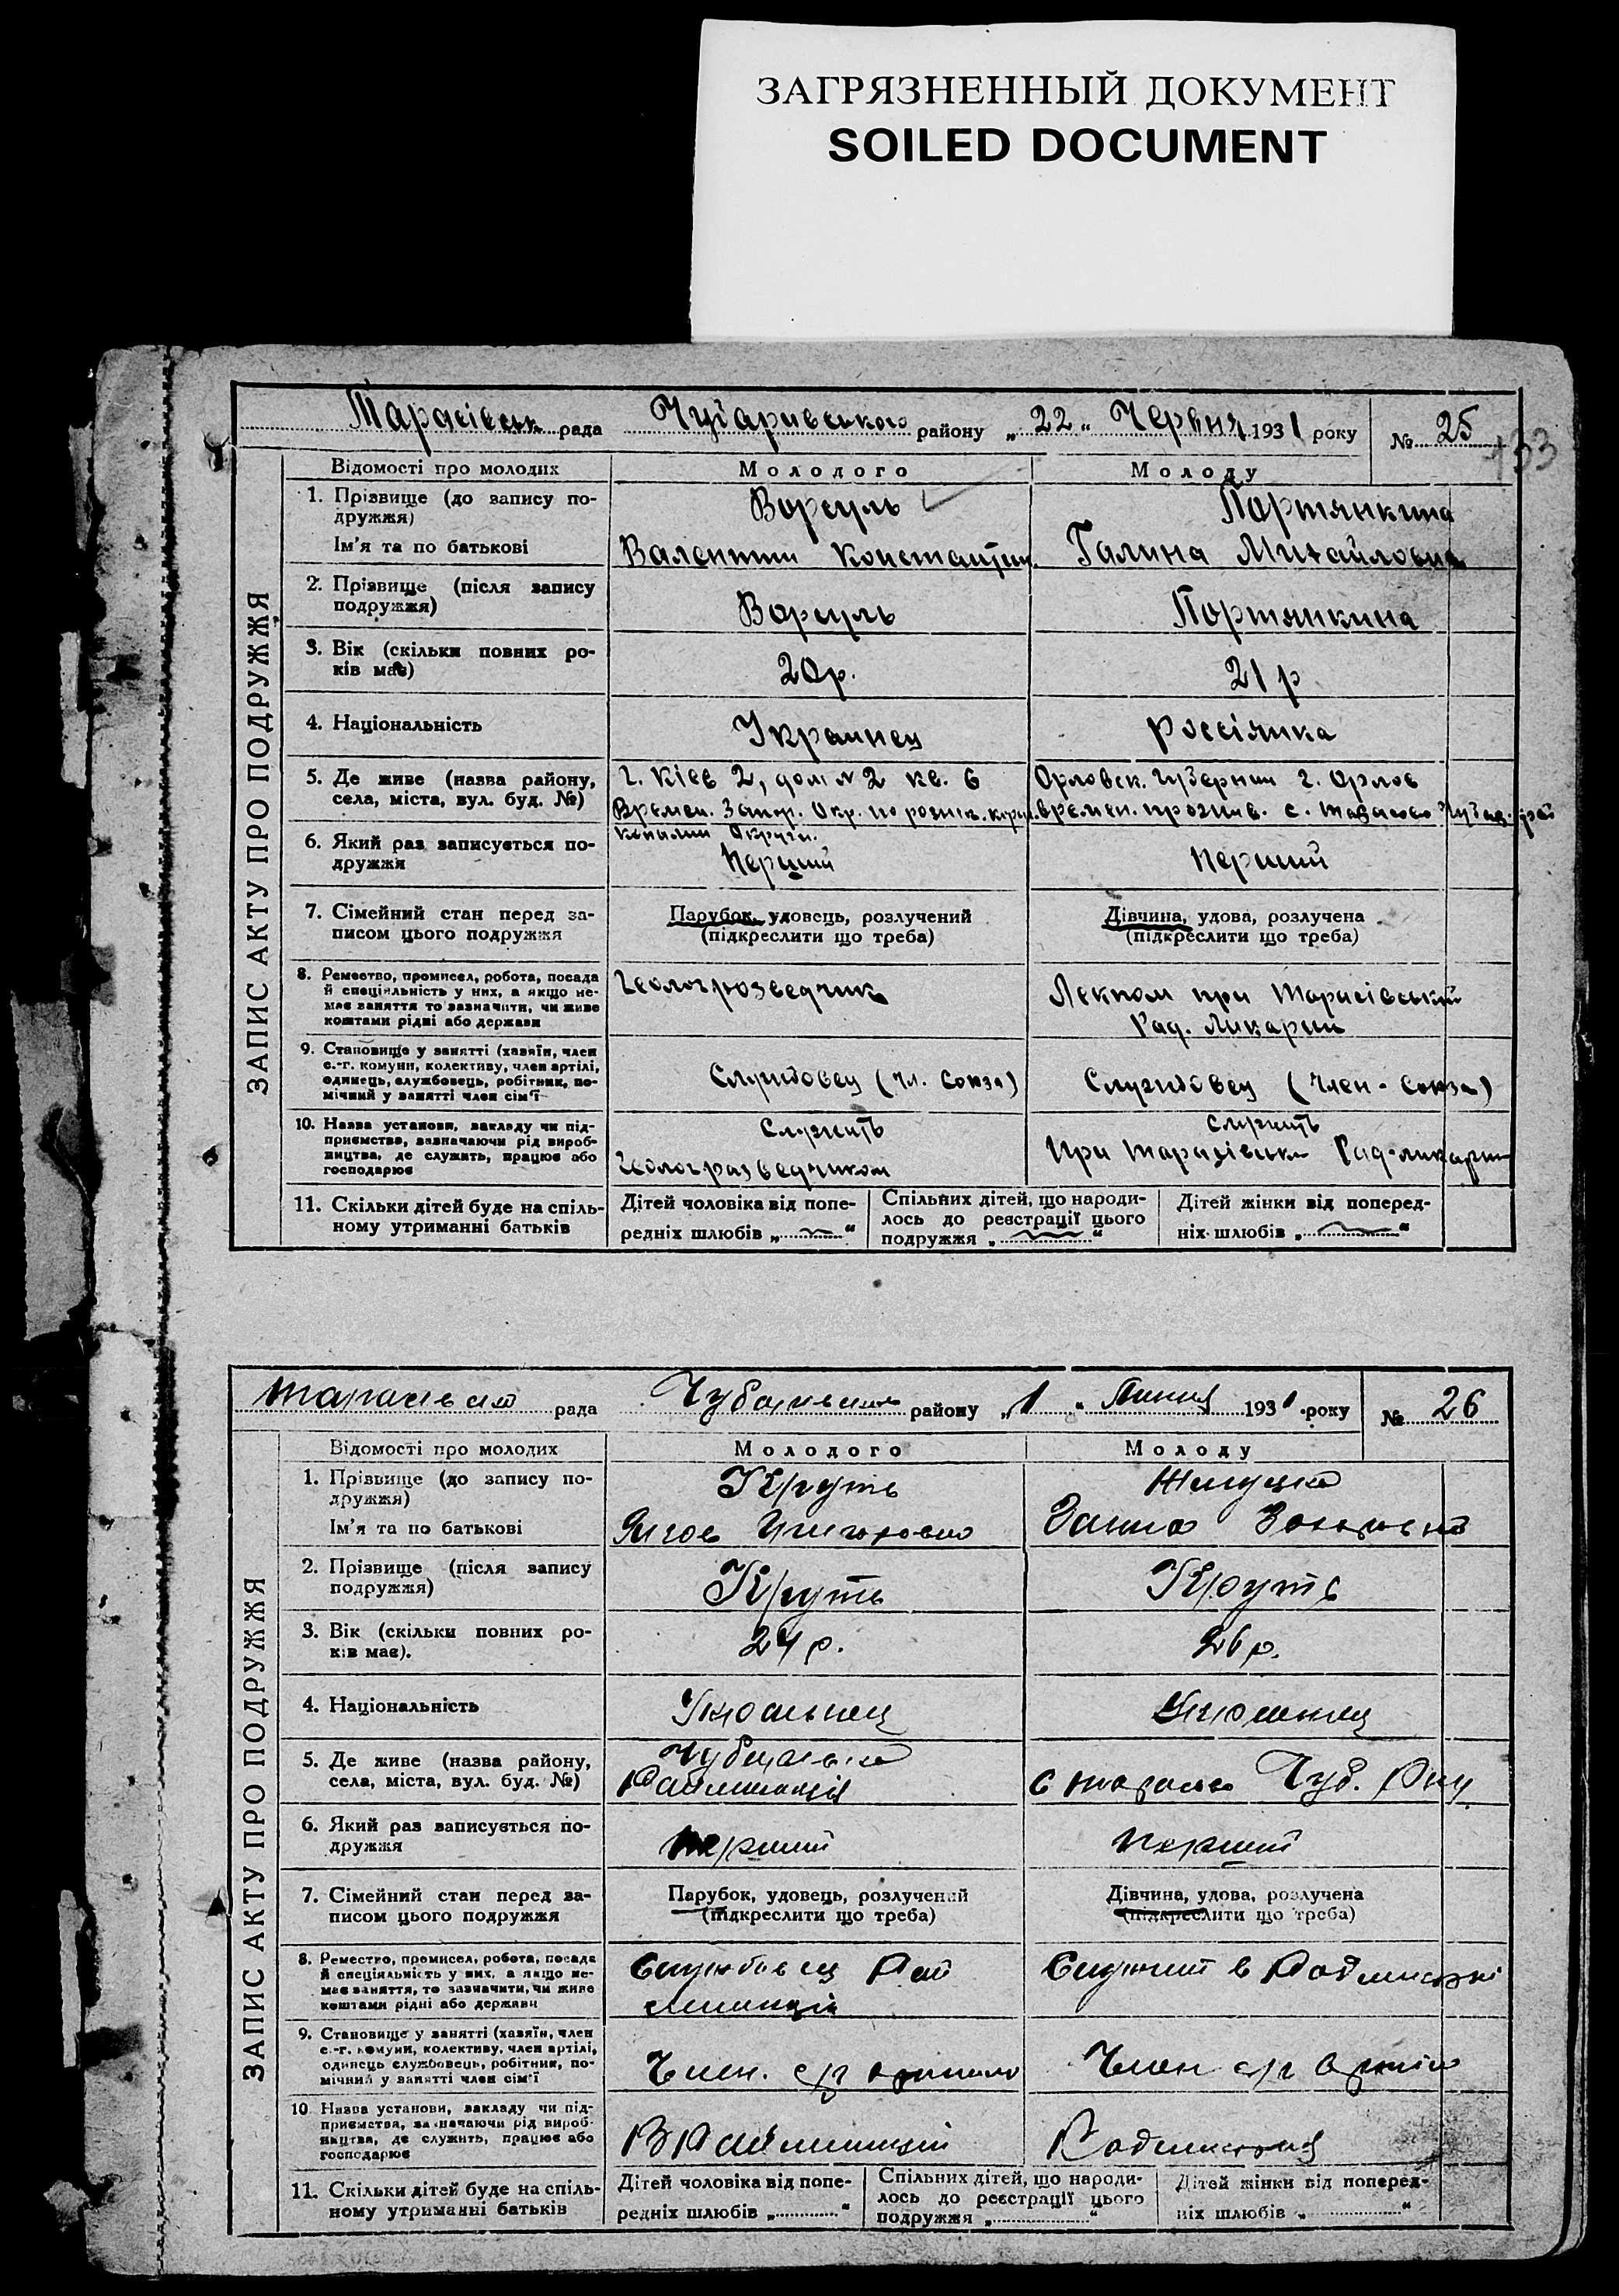 ЗАГРЯЗНЕННЫЙ ДОКУМЕНТ
SOILED DOCUMENT
Тарасівськ рада Чубарівського району „ 22 “ Червня 1931 року № 25
133
ЗАПИС АКТУ ПРО ПОДРУЖЖЯ
Відомості про молодих Молодого Молоду
1. Прізвище (до запису по-
дружжя) Ворсуль Портянкина
Ім'я та по батькові Валентин Константин. Галина Михайловна
2. Прізвище (після запису
подружжя) Ворсуль Портянкина
3. Вік (скільки повних ро-
ків має) 20р. 21р
4. Національність Украинец россіянка
5. Де живе (назва району,
села, міста, вул. буд. №)
г. Кіев 2, дом №2 кв. 6
Времен. Запор. Окр. по розвік. корис.
копалин Округи.
Орловск. губернии г. Орлов
времен. прожив. с. Тарасовс Чубар. рай
6. Який раз записується по-
дружжя Перший Перший
7. Сімейний стан перед за-
писом цього подружжя
Парубок, удовець, розлучений
(підкреслити що треба)
Дівчина, удова, розлучена
(підкреслити що треба)
8. Ремество, промисел, робота, посада
й спеціяльність у них, а якщо не-
має заняття то зазначити, чи живе
коштами рідні або держави
Геологрозведчик
Лекпом при Тарасівській
Рад. Ликарни
9. Становище у занятті (хазяїн, член
с.-г. комуни, колективу, член артілі,
одинець, службовець, робітник, по-
мічний у занятті член сім'ї
Службовец (чл. Союза) Службовец (член-Союза)
10. Назва установи, закладу чи під-
приємства, зазначаючи рід вироб-
ництва, де служить, працює або
господарює
Служить
Геологразведчиком
Служить
При Тарасівськ. Рад-ликарни
11. Скільки дітей буде на спіль-
ному утриманні батьків
Дітей чоловіка від попе-
редніх шлюбів „ “
Спільних дітей, що народи-
лось до реєстрації цього
подружжя „ “
Дітей жінки від поперед-
ніх шлюбів „ “
Тарасівська рада Чубарівськ району „ 1 “ Липня 1931 року № 26
ЗАПИС АКТУ ПРО ПОДРУЖЖЯ
Відомості про молодих Молодого Молоду
1. Прізвище (до запису по-
дружжя) Круть
Ім'я та по батькові Яков Григорович Ганна
2. Прізвище (після запису
подружжя) Круть Круть
3. Вік (скільки повних ро-
ків має). 24р. 26р.
4. Національність Українец Українец
5. Де живе (назва району,
села, міста, вул. буд. №)
Чубарівка
Райміліція
с Тарасівка Чуб. Рну
6. Який раз записується по-
дружжя перший перший
7. Сімейний стан перед за-
писом цього подружжя
Парубок, удовець, розлучений
(підкреслити що треба)
Дівчина, удова, розлучена
(підкреслити що треба)
8. Ремество, промисел, робота, посада
й спеціяльність у них, а якщо не-
має заняття, то зазначити, чи живе
коштами рідні або держави
Службовец Рай
милиция
Служит в
9. Становище у занятті (хазяїн, член
с.-г. комуни, колективу, член артілі,
одинець службовець, робітник, по-
мічний у занятті член сім'ї
Член. с/г артили Член с/г Артіли
10 Назва установи, закладу чи під-
приємства, зазначаючи рід вироб-
ництва, де служить, працює або
господарює
В Раймилиции
11. Скільки дітей буде на спіль-
ному утриманні батьків
Дітей чоловіка від попе-
редніх шлюбів „ “
Спільних дітей, що народи-
лось до реєстрації цього
подружжя „ “
Дітей жінки від поперед-
ніх шлюбів „ “